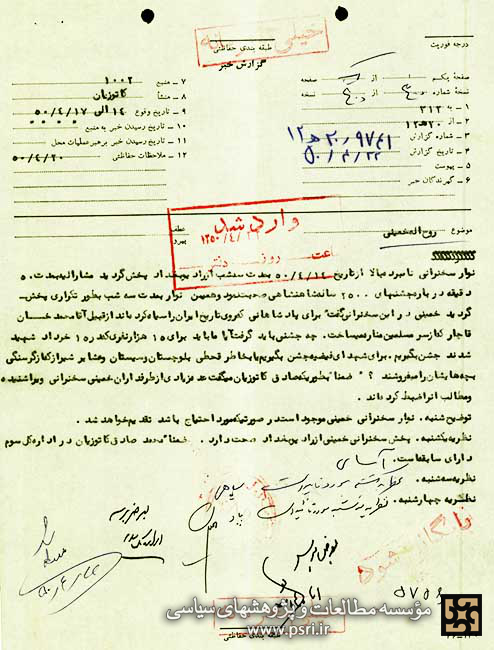 خیلی محرمانه
درجه فوریت
طبقه بندی حفاظتی
گزارش خبر
صفحه یکم از یک صفحه
نسخه شماره از نسخه
۱ ـ به ۳۱۲
۲ ـ از ۲۰ ه ۱۲
۳ ـ شماره گزارش ۹۷۴۱ / ۲۰ ه ۱۲
۴ ـ تاریخ گزارش
۵ ـ پیوست
۶ ـ گیرندگان خبر
۷ ـ منبع ۱۰۰۲
۸ ـ منشأ کاتوزیان
۹ ـ تاریخ وقوع ۱۴ الی ۵۰/۴/۱۷
۱۰ ـ تاریخ رسیدن خبر به منبع
۱۱ ـ تاریخ رسیدن خبر برهبر عملیات محل
۱۲ ـ ملاحظات حفاظتی ۵۰/۴/۲۰
وارد شد
۱۳۵۰/۴/
ساعت روز دفتر
موضوع روح اله خمینی
عطف
پیرو
نوار سخنرانی نامبرده بالا از تاریخ ۵۰/۴/۱۴ بمدت سه شب از رادیو بغداد پخش گردید مشارالیه بمدت ۵۰
دقیقه درباره جشنهای ۲۵۰۰ ساله شاهنشاهی صحبت نمود و همین نوار بمدت سه شب بطور تکراری پخش
گردید خمینی در این سخنرانی گفت برای پادشاهانی که روی تاریخ ایران را سیاه کرده اند از قبیل آقا محمد خان
قاجار که از سر مسلمین مناره میساخت، چه جشنی باید گرفت آیا ما باید برای ۱۵ هزار نفری که در ۱۵ خرداد شهید
شدند جشن بگیریم، برای شهدای فیضیه جشن بگیریم یا بخاطر قحطی بلوچستان و سیستان و عشایر شیراز که از گرسنگی
بچه هایشان را میفروشند ؟ ضمنا بطوریکه صادق کاتوزیان میگفت عده زیادی از طرفداران خمینی سخنرانی ویرا شنیده
و مطالب انرا ضبط کرده اند .
توضیح شنبه . نوار سخنرانی خمینی موجود است در صورتیکه مورد احتیاج باشد تقدیم خواهد شد .
نظریه یکشنبه . پخش سخنرانی خمینی از رادیو بغداد صحت دارد . ضمنا صادق کاتوزیان در اداره کل سوم
دارای سابقه است .
نظریه سه شنبه .
نظریه چهارشنبه .
بایگانی شود
طبقه بندی حفاظتی
مؤسسه مطالعات و پژوهشهای سیاسی
www.psri.ir